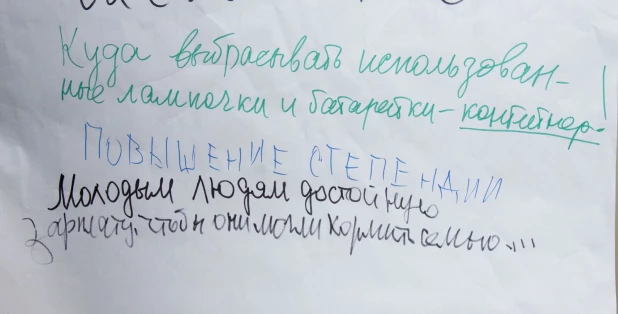 Куда выбрасывать использован-
ные лампочки и батарейки – контейнер!
ПОВЫШЕНИЕ СТЕПЕНДИИ
Молодым людям достойную
зарплату, чтобы они могли кормить семью...